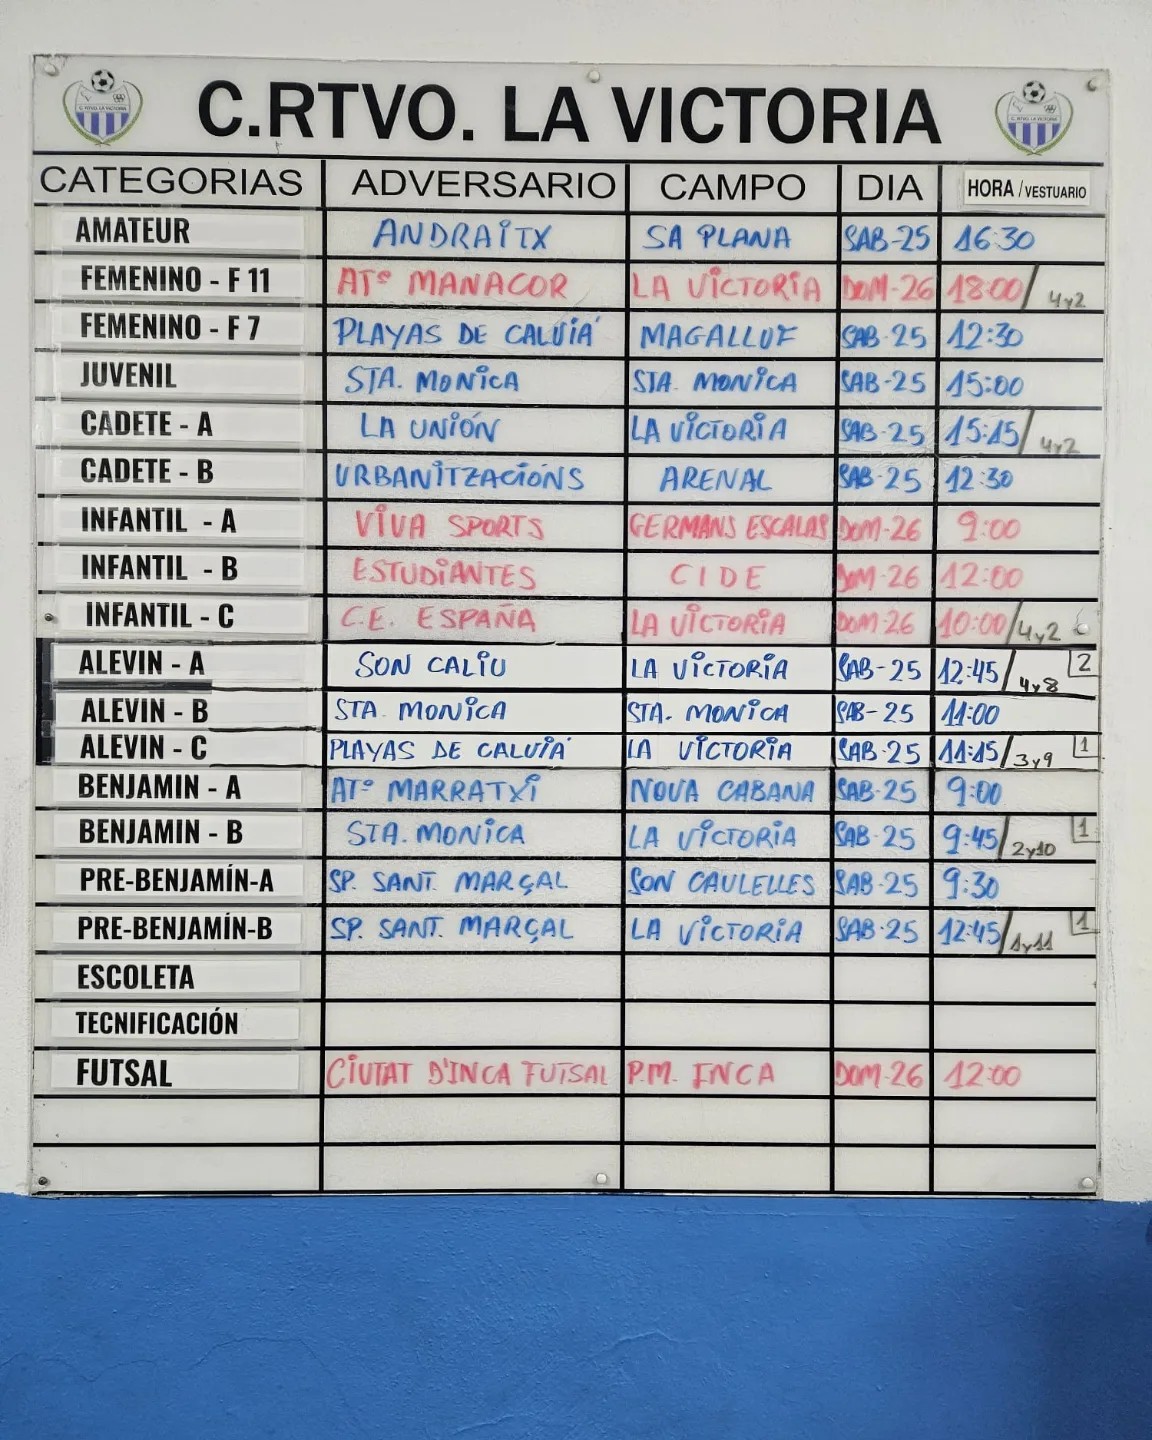 C.RTVO. LA VICTORIA
CATEGORIAS ADVERSARIO CAMPO DIA HORA / VESTUARIO
AMATEUR ANDRAITX SA PLANA SAB-25 16:30
FEMENINO - F 11 ATº MANACOR LA VICTORIA DOM-26 18:00/ 4y2
FEMENINO - F 7 PLAYAS DE CALVIÁ MAGALLUF SAB-25 12:30
JUVENIL STA. MONICA STA. MONICA SAB-25 15:00
CADETE - A LA UNIÓN LA VICTORIA SAB-25 15:15/ 4y2
CADETE - B URBANITZACIÓNS ARENAL SAB-25 12:30
INFANTIL - A VIVA SPORTS GERMANS ESCALAS DOM-26 9:00
INFANTIL - B ESTUDIANTES CIDE DOM-26 12:00
INFANTIL - C C.E. ESPAÑA LA VICTORIA DOM-26 10:00/ 4y2
ALEVIN - A SON CALIU LA VICTORIA SAB-25 12:45/ 4y8 2
ALEVIN - B STA. MONICA STA. MONICA SAB-25 11:00
ALEVIN - C PLAYAS DE CALVIÁ LA VICTORIA SAB-25 11:15/ 3y9 1
BENJAMIN - A ATº MARRATXI NOVA CABANA SAB-25 9:00
BENJAMIN - B STA. MONICA LA VICTORIA SAB-25 9:45/ 2y10 1
PRE-BENJAMÍN-A SP. SANT. MARÇAL SON CAULELLES SAB-25 9:30
PRE-BENJAMÍN-B SP. SANT. MARÇAL LA VICTORIA SAB-25 12:45/ 1y11 1
ESCOLETA
TECNIFICACIÓN
FUTSAL CIUTAT D'INCA FUTSAL P.M. INCA DOM-26 12:00